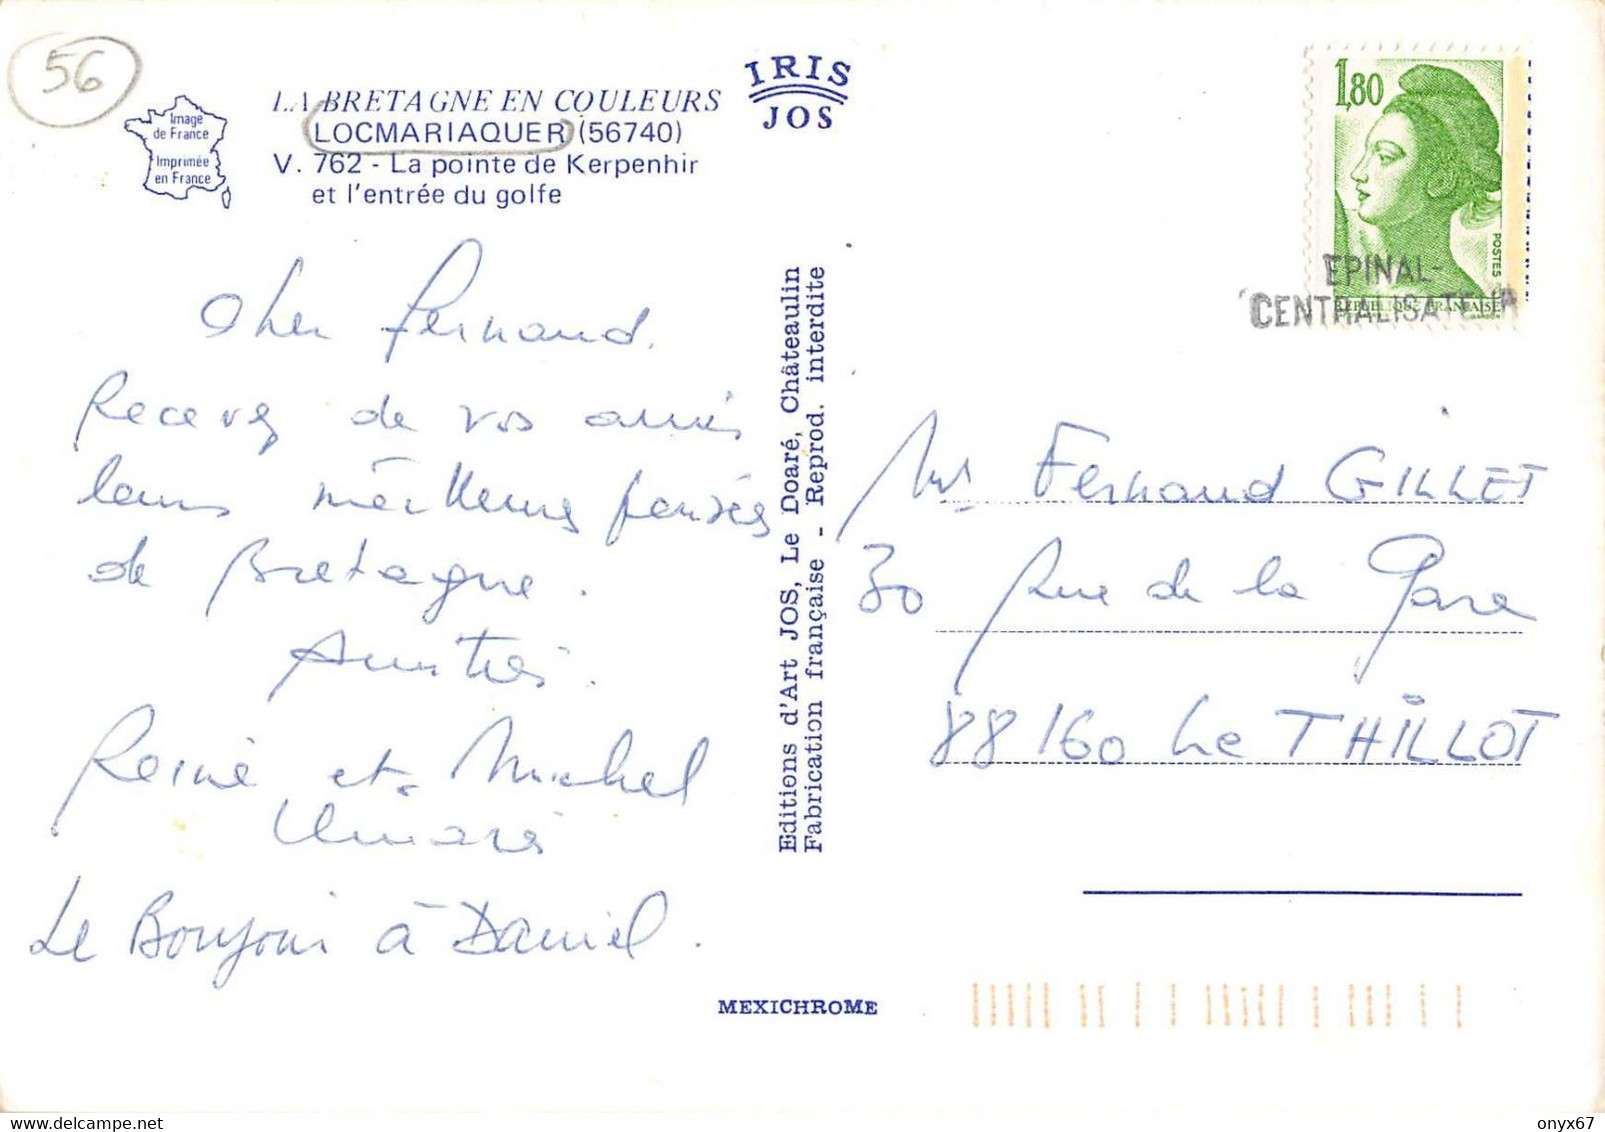 56
Image
de France
Imprimée
en France
LA BRETAGNE EN COULEURS
LOCMARIAQUER (56740)
V. 762 - La pointe de Kerpenhir
et l'entrée du golfe
IRIS
JOS
1,80
POSTES
REPUBLIQUE FRANÇAISE
EPINAL-
CENTRALISATEUR
Cher Fernand.
Recevez de vos amis
leurs meilleures pensées
de Bretagne.
Amitiés.
Reine et Michel
Le Bonjour à Daniel.
Editions d'Art JOS, Le Doaré, Châteaulin
Fabrication française - Reprod. interdite
Mr Fernand GILLET
30 Rue de la Gare
88160 Le THILLOT
MEXICHROME
delcampe.net
onyx67